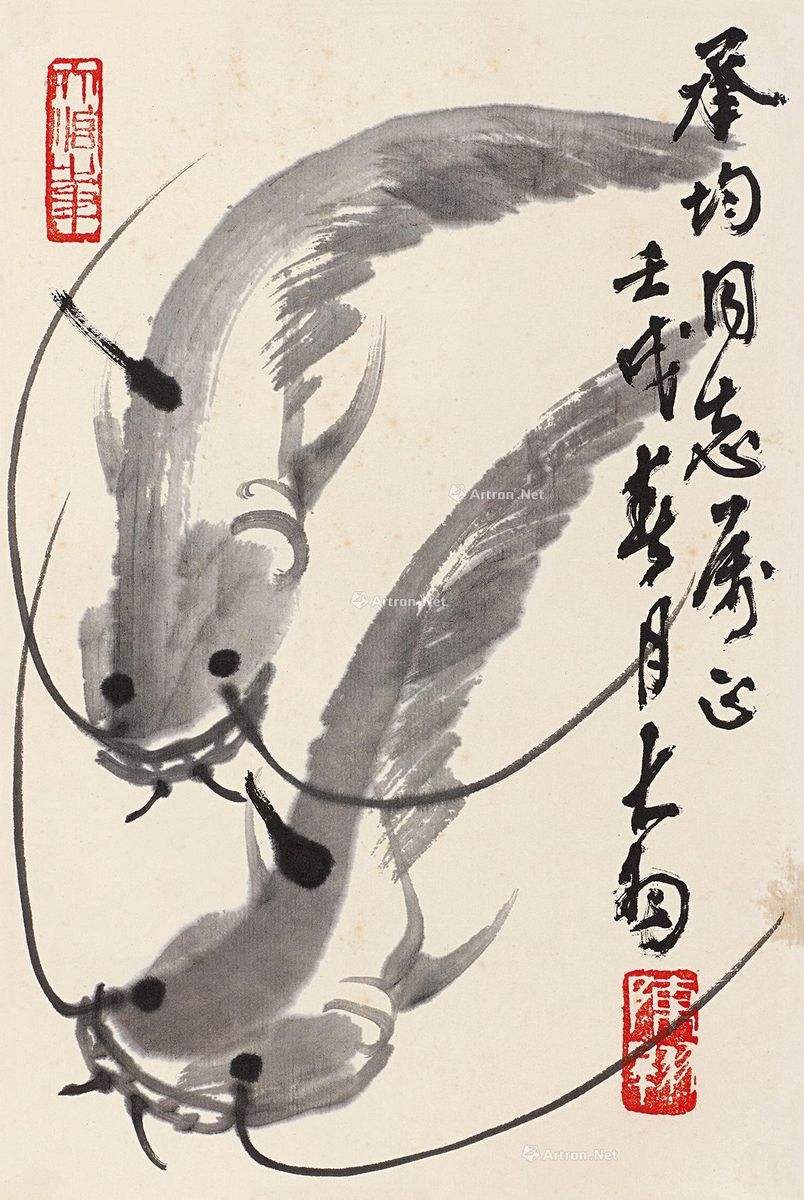 承均同志属正
壬戌春月大羽
Artron.Net
Artron.Net
Artron.Net